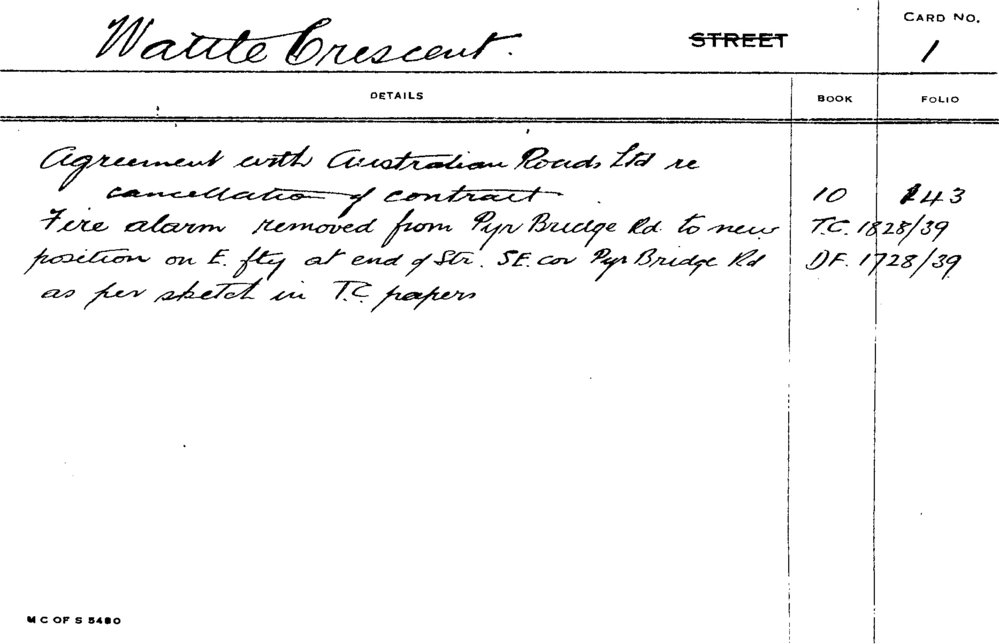 Wattle Crescent. STREET
CARD NO.
1
DETAILS BOOK FOLIO
Agreement with Australian Roads Ltd re
cancellation of contract 10 143
Fire alarm removed from Pyr Bridge Rd to new T.C. 1828/39
position on E. ftg at end of Str. SE. cor Pyr Bridge Rd DF. 1728/39
as per sketch in T.C. papers
M C OF S 5480